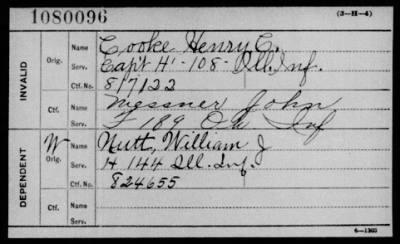 1080096
(3-H-4)
INVALID
Orig.
Name Cooke Henry C.
Serv. Capt H - 108 - Ill. Inf.
Ctf. No. 817122
Ctf.
Name Messner John
Serv. F 189 Oh Inf
DEPENDENT
W Orig.
Name Nutt, William J
Serv. H 144 Ill. Inf.
Ctf. No. 824655
Ctf.
Name
Serv.